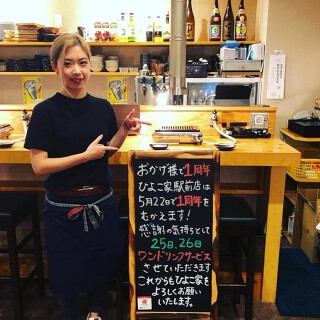 おかげ様で1周年
ひよこ家駅前店は
5月22日で1周年を
むかえます!
感謝の気持ちとして
25日、26日
ワンドリンクサービス
させていただきます
これからもひよこ家を
よろしくお願い
いたします。